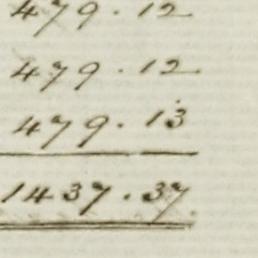 479.12
479.12
479.13
1437.37